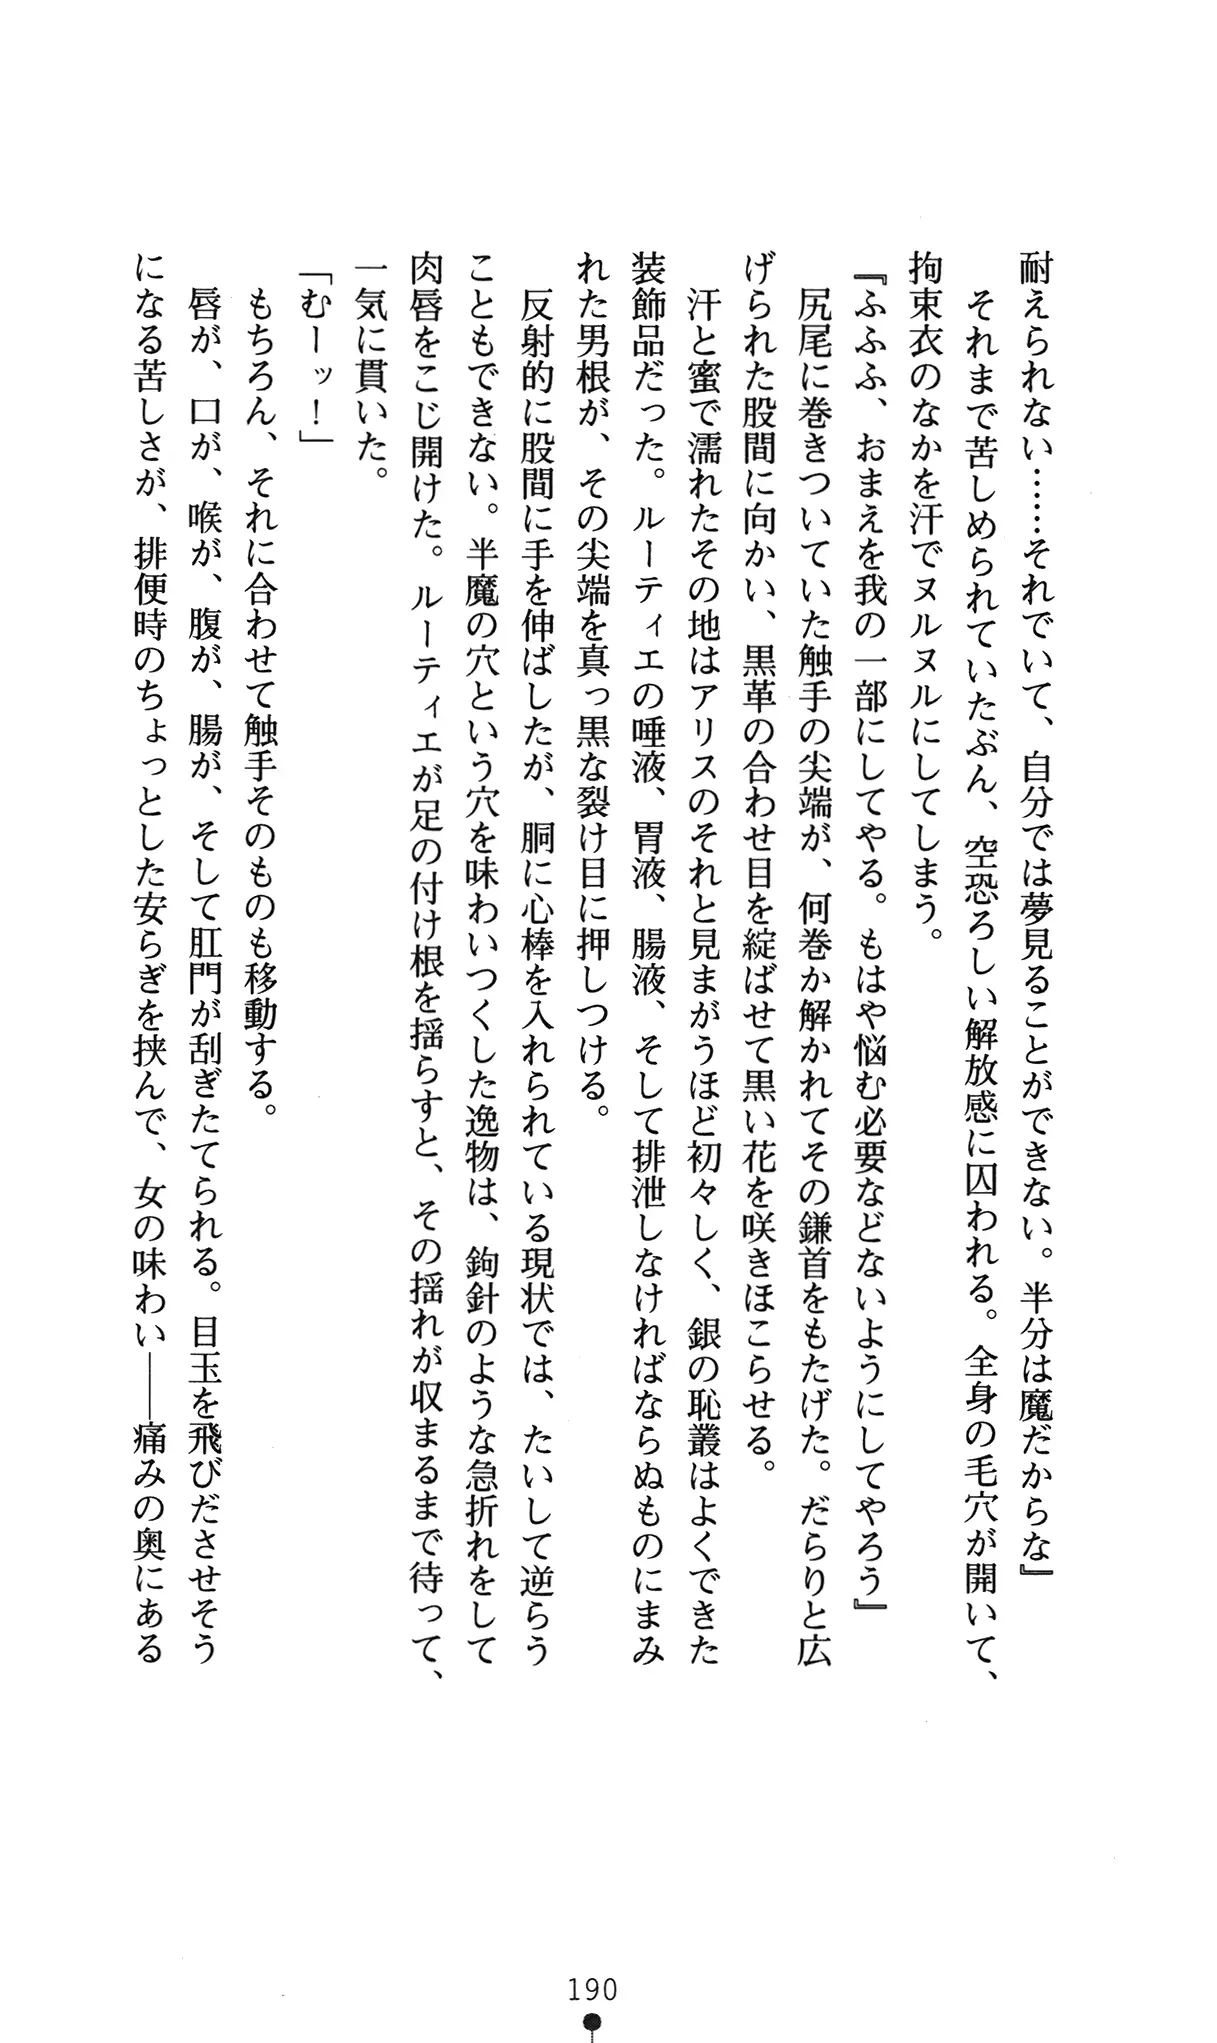 耐えられない……それでいて、自分では夢見ることができない。半分は魔だからな』
それまで苦しめられていたぶん、空恐ろしい解放感に囚われる。全身の毛穴が開いて、
拘束衣のなかを汗でヌルヌルにしてしまう。
『ふふふ、おまえを我の一部にしてやる。もはや悩む必要などないようにしてやろう』
尻尾に巻きついていた触手の尖端が、何巻か解かれてその鎌首をもたげた。だらりと広
げられた股間に向かい、黒革の合わせ目を綻ばせて黒い花を咲きほこらせる。
汗と蜜で濡れたその地はアリスのそれと見まがうほど初々しく、銀の恥叢はよくできた
装飾品だった。ルーティエの唾液、胃液、腸液、そして排泄しなければならぬものにまみ
れた男根が、その尖端を真っ黒な裂け目に押しつける。
反射的に股間に手を伸ばしたが、胴に心棒を入れられている現状では、たいして逆らう
こともできない。半魔の穴という穴を味わいつくした逸物は、鉤針のような急折れをして
肉唇をこじ開けた。ルーティエが足の付け根を揺らすと、その揺れが収まるまで待って、
一気に貫いた。
「むーッ！」
もちろん、それに合わせて触手そのものも移動する。
唇が、口が、喉が、腹が、腸が、そして肛門が刮ぎたてられる。目玉を飛びださせそう
になる苦しさが、排便時のちょっとした安らぎを挟んで、女の味わい――痛みの奥にある
190